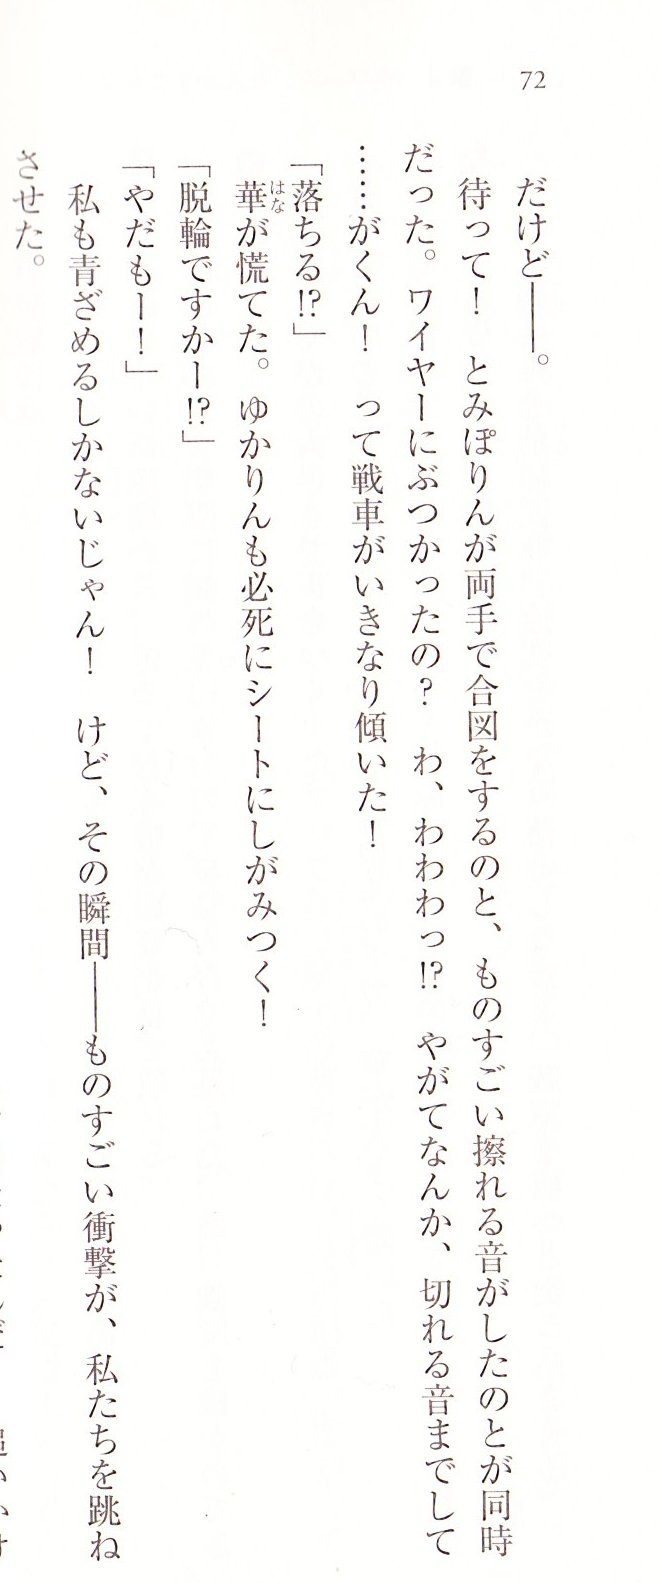 72
だけど――。
待って！　とみぽりんが両手で合図をするのと、ものすごい擦れる音がしたのとが同時
だった。ワイヤーにぶつかったの？　わ、わわわっ!?　やがてなんか、切れる音までして
……がくん！　って戦車がいきなり傾いた！
「落ちる!?」
華はなが慌てた。ゆかりんも必死にシートにしがみつく！
「脱輪ですかー!?」
「やだもー！」
私も青ざめるしかないじゃん！　けど、その瞬間――ものすごい衝撃が、私たちを跳ね
させた。